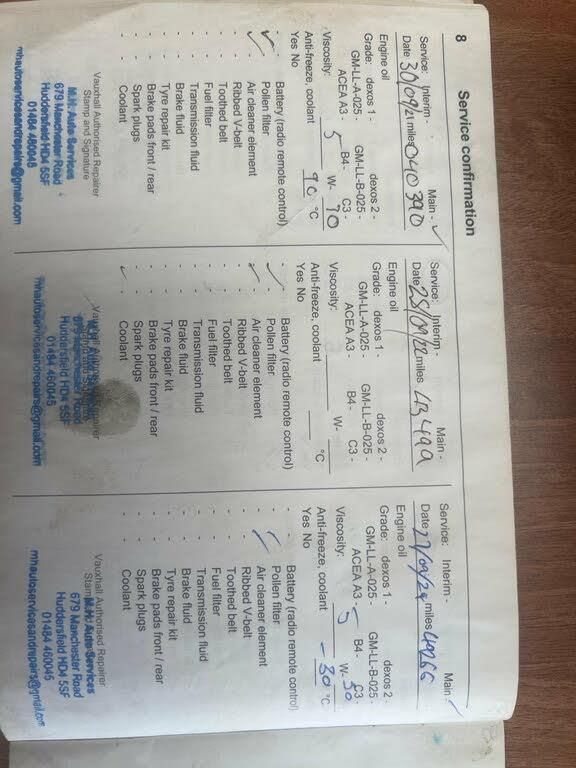 8
Service confirmation
Service: Interim - Main - ✓
Date 30/09/21 miles 040390
Engine oil
Grade: dexos 1 - dexos 2 -
GM-LL-A-025 - GM-LL-B-025 -
ACEA A3 - B4- C3 -
Viscosity: 5 W-
Anti-freeze, coolant 90 °C
Yes No
- - Battery (radio remote control)
✓ - Pollen filter
✓ - Air cleaner element
- - Ribbed V-belt
- - Toothed belt
- - Fuel filter
- - Transmission fluid
- - Brake fluid
- - Tyre repair kit
- - Brake pads front / rear
- - Spark plugs
- - Coolant
Vauxhall Authorised Repairer
Stamp and Signature
M.H. Auto Services
679 Manchester Road
Huddersfield HD4 5SF
01484 460045
mhautoservicesandrepairs@gmail.com
Service: Interim - Main -
Date miles
Engine oil
Grade: dexos 1 - dexos 2 -
GM-LL-A-025 - GM-LL-B-025 -
ACEA A3 - B4- C3 -
Viscosity: W-
Anti-freeze, coolant °C
Yes No
- - Battery (radio remote control)
✓ - Pollen filter
✓ - Air cleaner element
- - Ribbed V-belt
- - Toothed belt
- - Fuel filter
- - Transmission fluid
- - Brake fluid
- - Tyre repair kit
- - Brake pads front / rear
✓ - Spark plugs
- - Coolant
Vauxhall Authorised Repairer
679 Manchester Road
Huddersfield HD4 5SF
01484 460045
mhautoservicesandrepairs@gmail.com
Service: Interim - Main - ✓
Date miles
Engine oil
Grade: dexos 1 - dexos 2 -
GM-LL-A-025 - GM-LL-B-025 -
ACEA A3 - B4- C3 -
Viscosity: 5 W- 30
Anti-freeze, coolant -30 °C
Yes No
- - Battery (radio remote control)
- - Pollen filter
✓ - Air cleaner element
- - Ribbed V-belt
- - Toothed belt
- - Fuel filter
- - Transmission fluid
- - Brake fluid
- - Tyre repair kit
- - Brake pads front / rear
- - Spark plugs
- - Coolant
Vauxhall Authorised Repairer
M.H. Auto Services
679 Manchester Road
Huddersfield HD4 5SF
01484 460045
mhautoservicesandrepairs@gmail.com